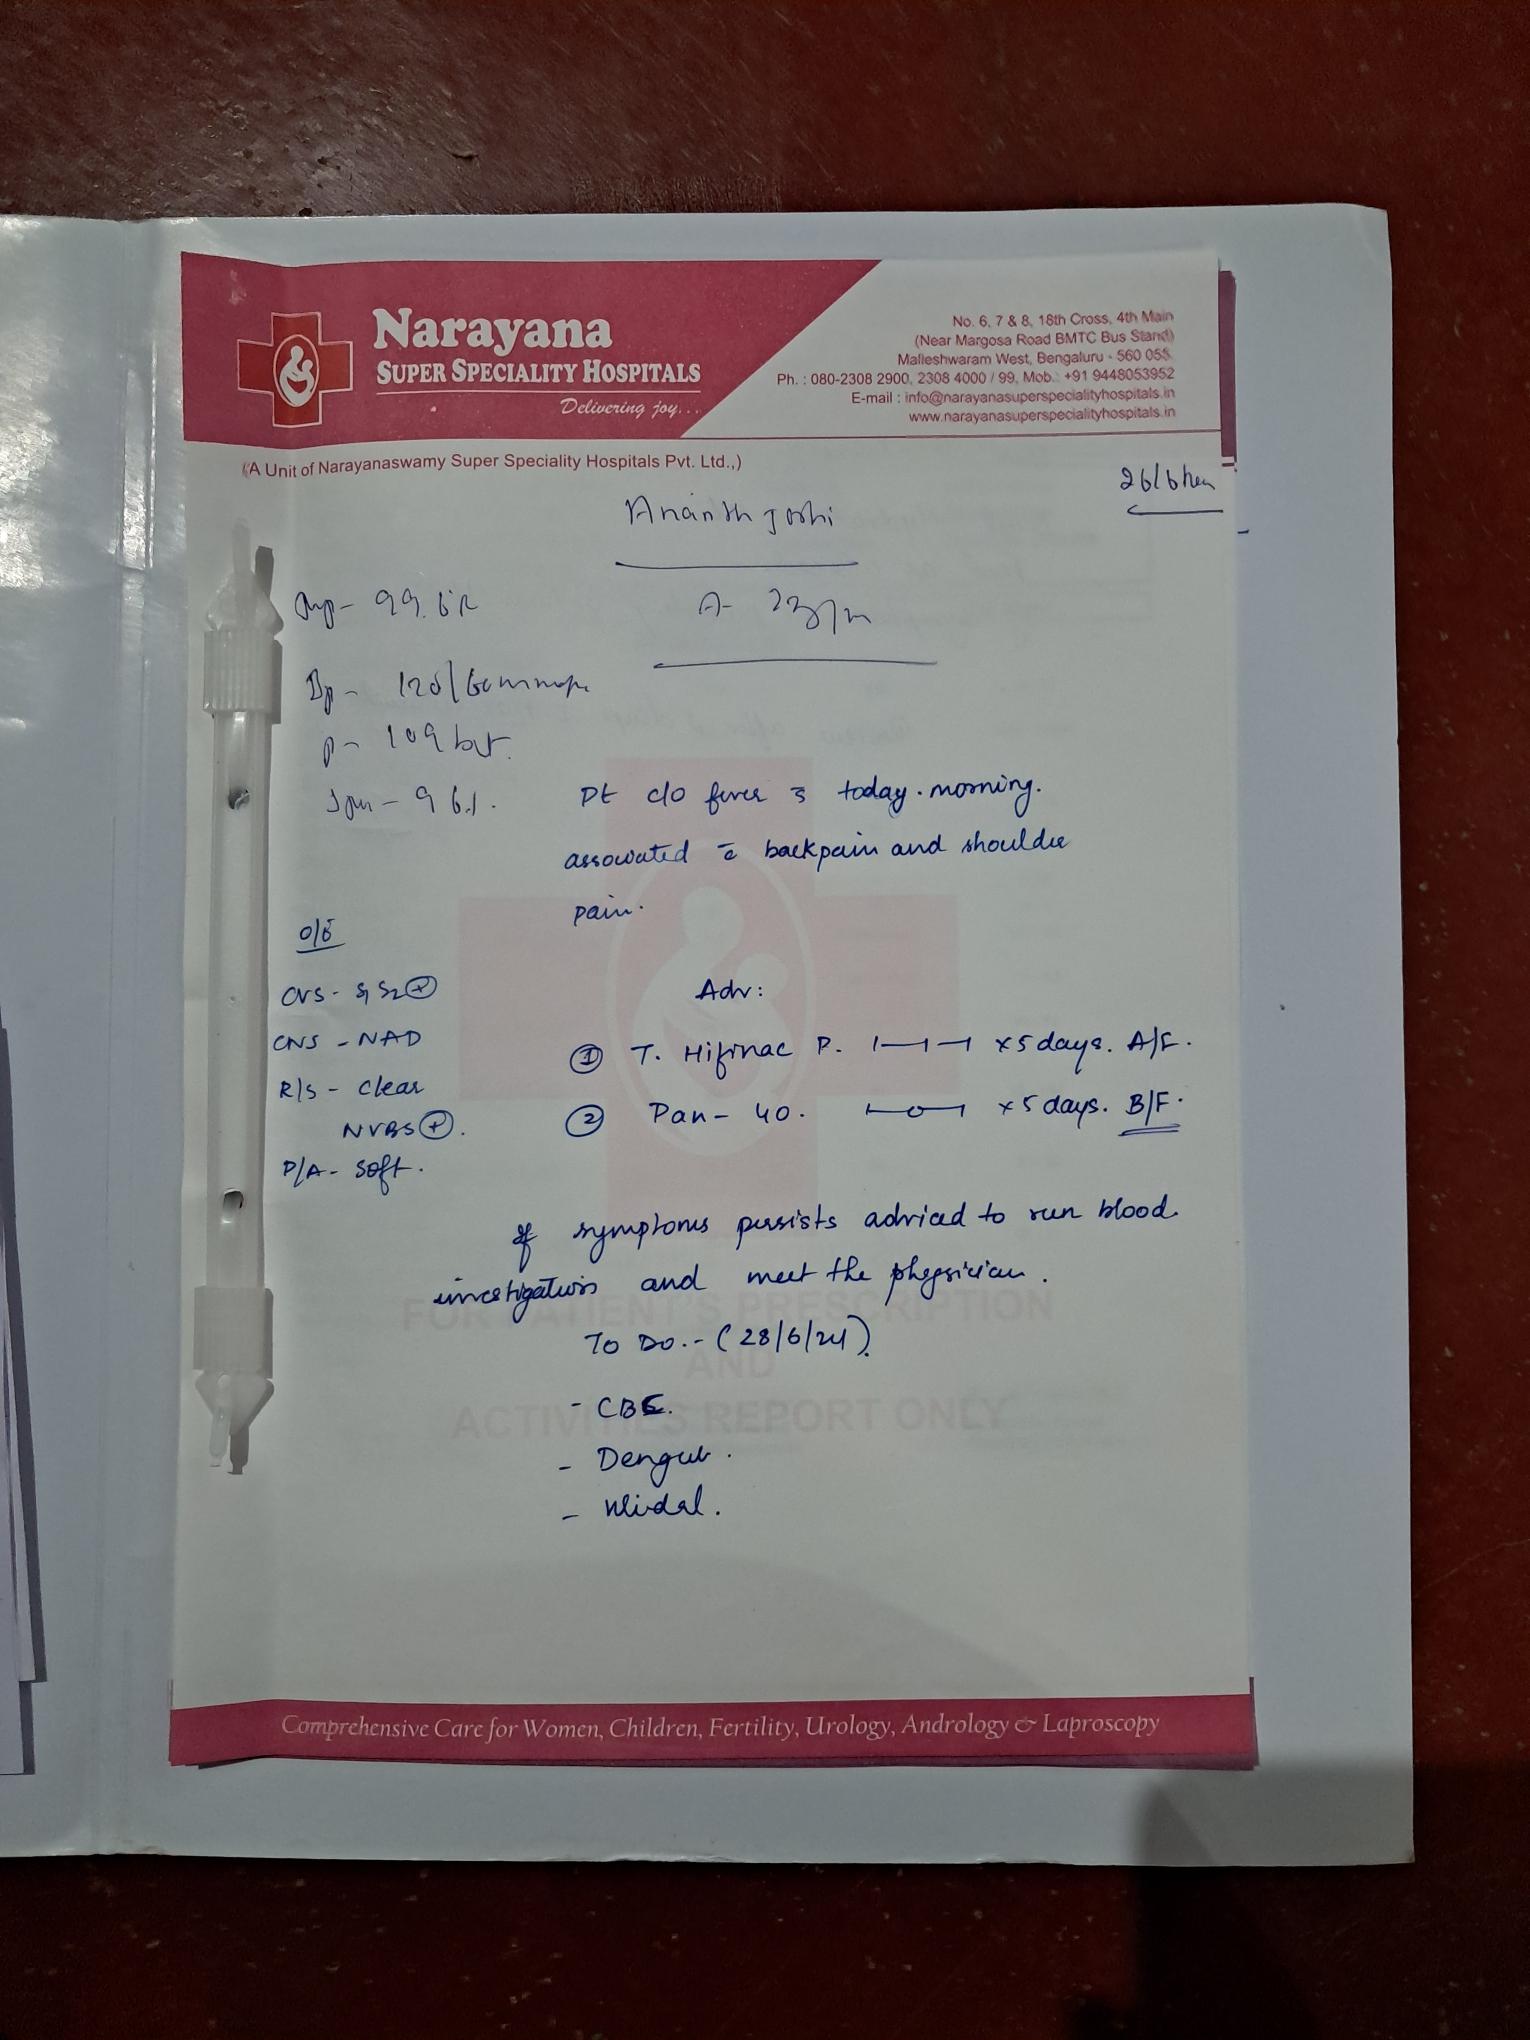 Narayana
SUPER SPECIALITY HOSPITALS
Delivering joy...
No. 6, 7 & 8, 18th Cross, 4th Main
(Near Margosa Road BMTC Bus Stand)
Malleshwaram West, Bengaluru - 560 055
Ph. : 080-2308 2900, 2308 4000 / 99, Mob.: +91 9448053952
E-mail : info@narayanasuperspecialityhospitals.in
www.narayanasuperspecialityhospitals.in
(A Unit of Narayanaswamy Super Speciality Hospitals Pvt. Ltd.,)
Ananth Joshi
A- 23/m
Bp -
P- 109
Pt c/o fever today morning.
associated c̄ backpain and shoulder
pain.
O/E
CVS - S1 S2 ⊕
CNS - NAD
R/S - Clear
NVBS ⊕.
P/A - Soft.
Adv:
① T. Hifinac P. 1-1-1 x 5 days. A/F.
② Pan- 40. 1-0-1 x 5 days. B/F.
If symptoms persists adviced to run blood
investigations and meet the physician.
To Do.- (28/6/24)
- CBC.
- Dengue.
- Widal.
FOR PATIENT'S PRESCRIPTION
AND
ACTIVITIES REPORT ONLY
Comprehensive Care for Women, Children, Fertility, Urology, Andrology & Laproscopy